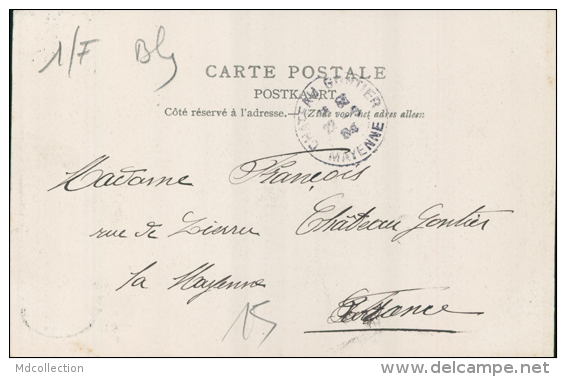 1/F Bly
CARTE POSTALE
POSTKAART
Côté réservé à l'adresse. — (Zijde voor het adres alleen
CHATEAU GONTIER
MAYENNE
Madame François
rue de Château Gontier
la Mayenne
France
15
Mdcollection
delcampe.net